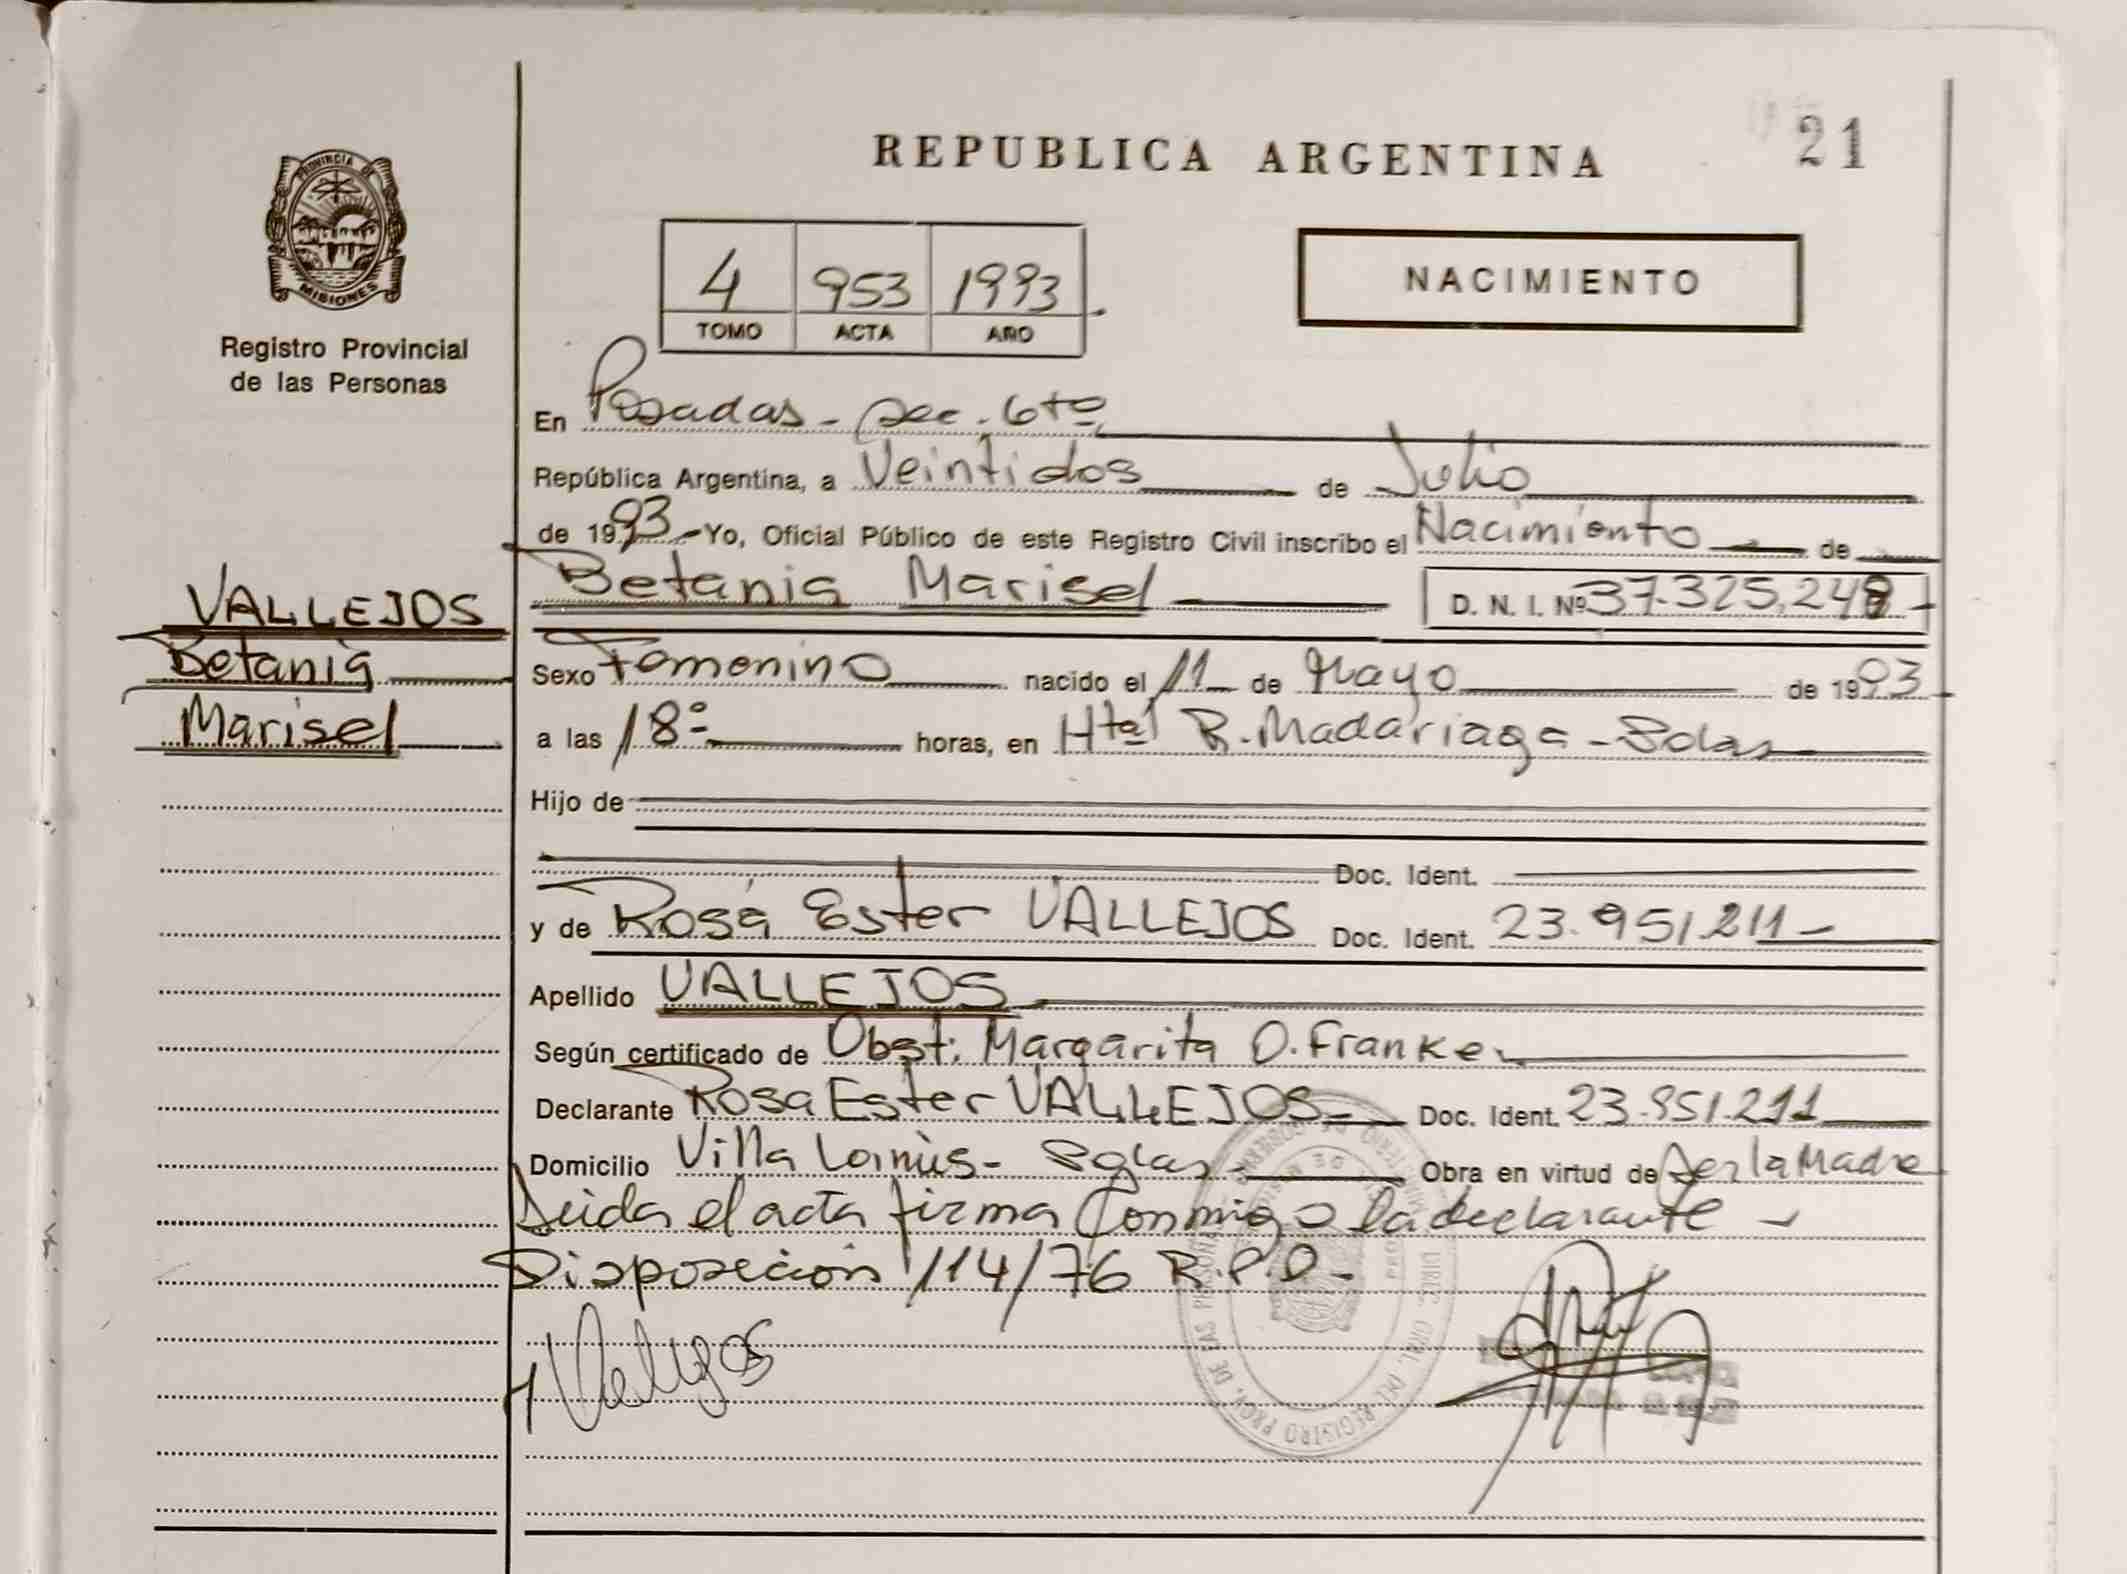 REPUBLICA ARGENTINA
21
PROVINCIA DE
MISIONES
Registro Provincial
de las Personas
4 953 1993
TOMO ACTA AÑO
NACIMIENTO
En Posadas - sec. 6ta
República Argentina, a Veintidos de Julio
de 1993 - Yo, Oficial Público de este Registro Civil inscribo el Nacimiento de
VALLEJOS
Betania
Marisel
Betania Marisel D. N. I. Nº 37.325.248 -
Sexo Femenino nacido el 11 de Mayo de 1993
a las 18º horas, en Htal R. Madariaga - Pdas
Hijo de
Doc. Ident.
y de Rosa Ester VALLEJOS Doc. Ident. 23.951.211 -
Apellido VALLEJOS
Según certificado de Obst. Margarita O. Franke
Declarante Rosa Ester VALLEJOS - Doc. Ident. 23.951.211
Domicilio Villa Lanús - Pdas - Obra en virtud de Ser la Madre
Leida el acta firma Conmigo la declarante -
Disposición 114/76 R.P.P. -
Vallejos
DIREC. GRAL. DEL REGISTRO PROV. DE LAS PERSONAS